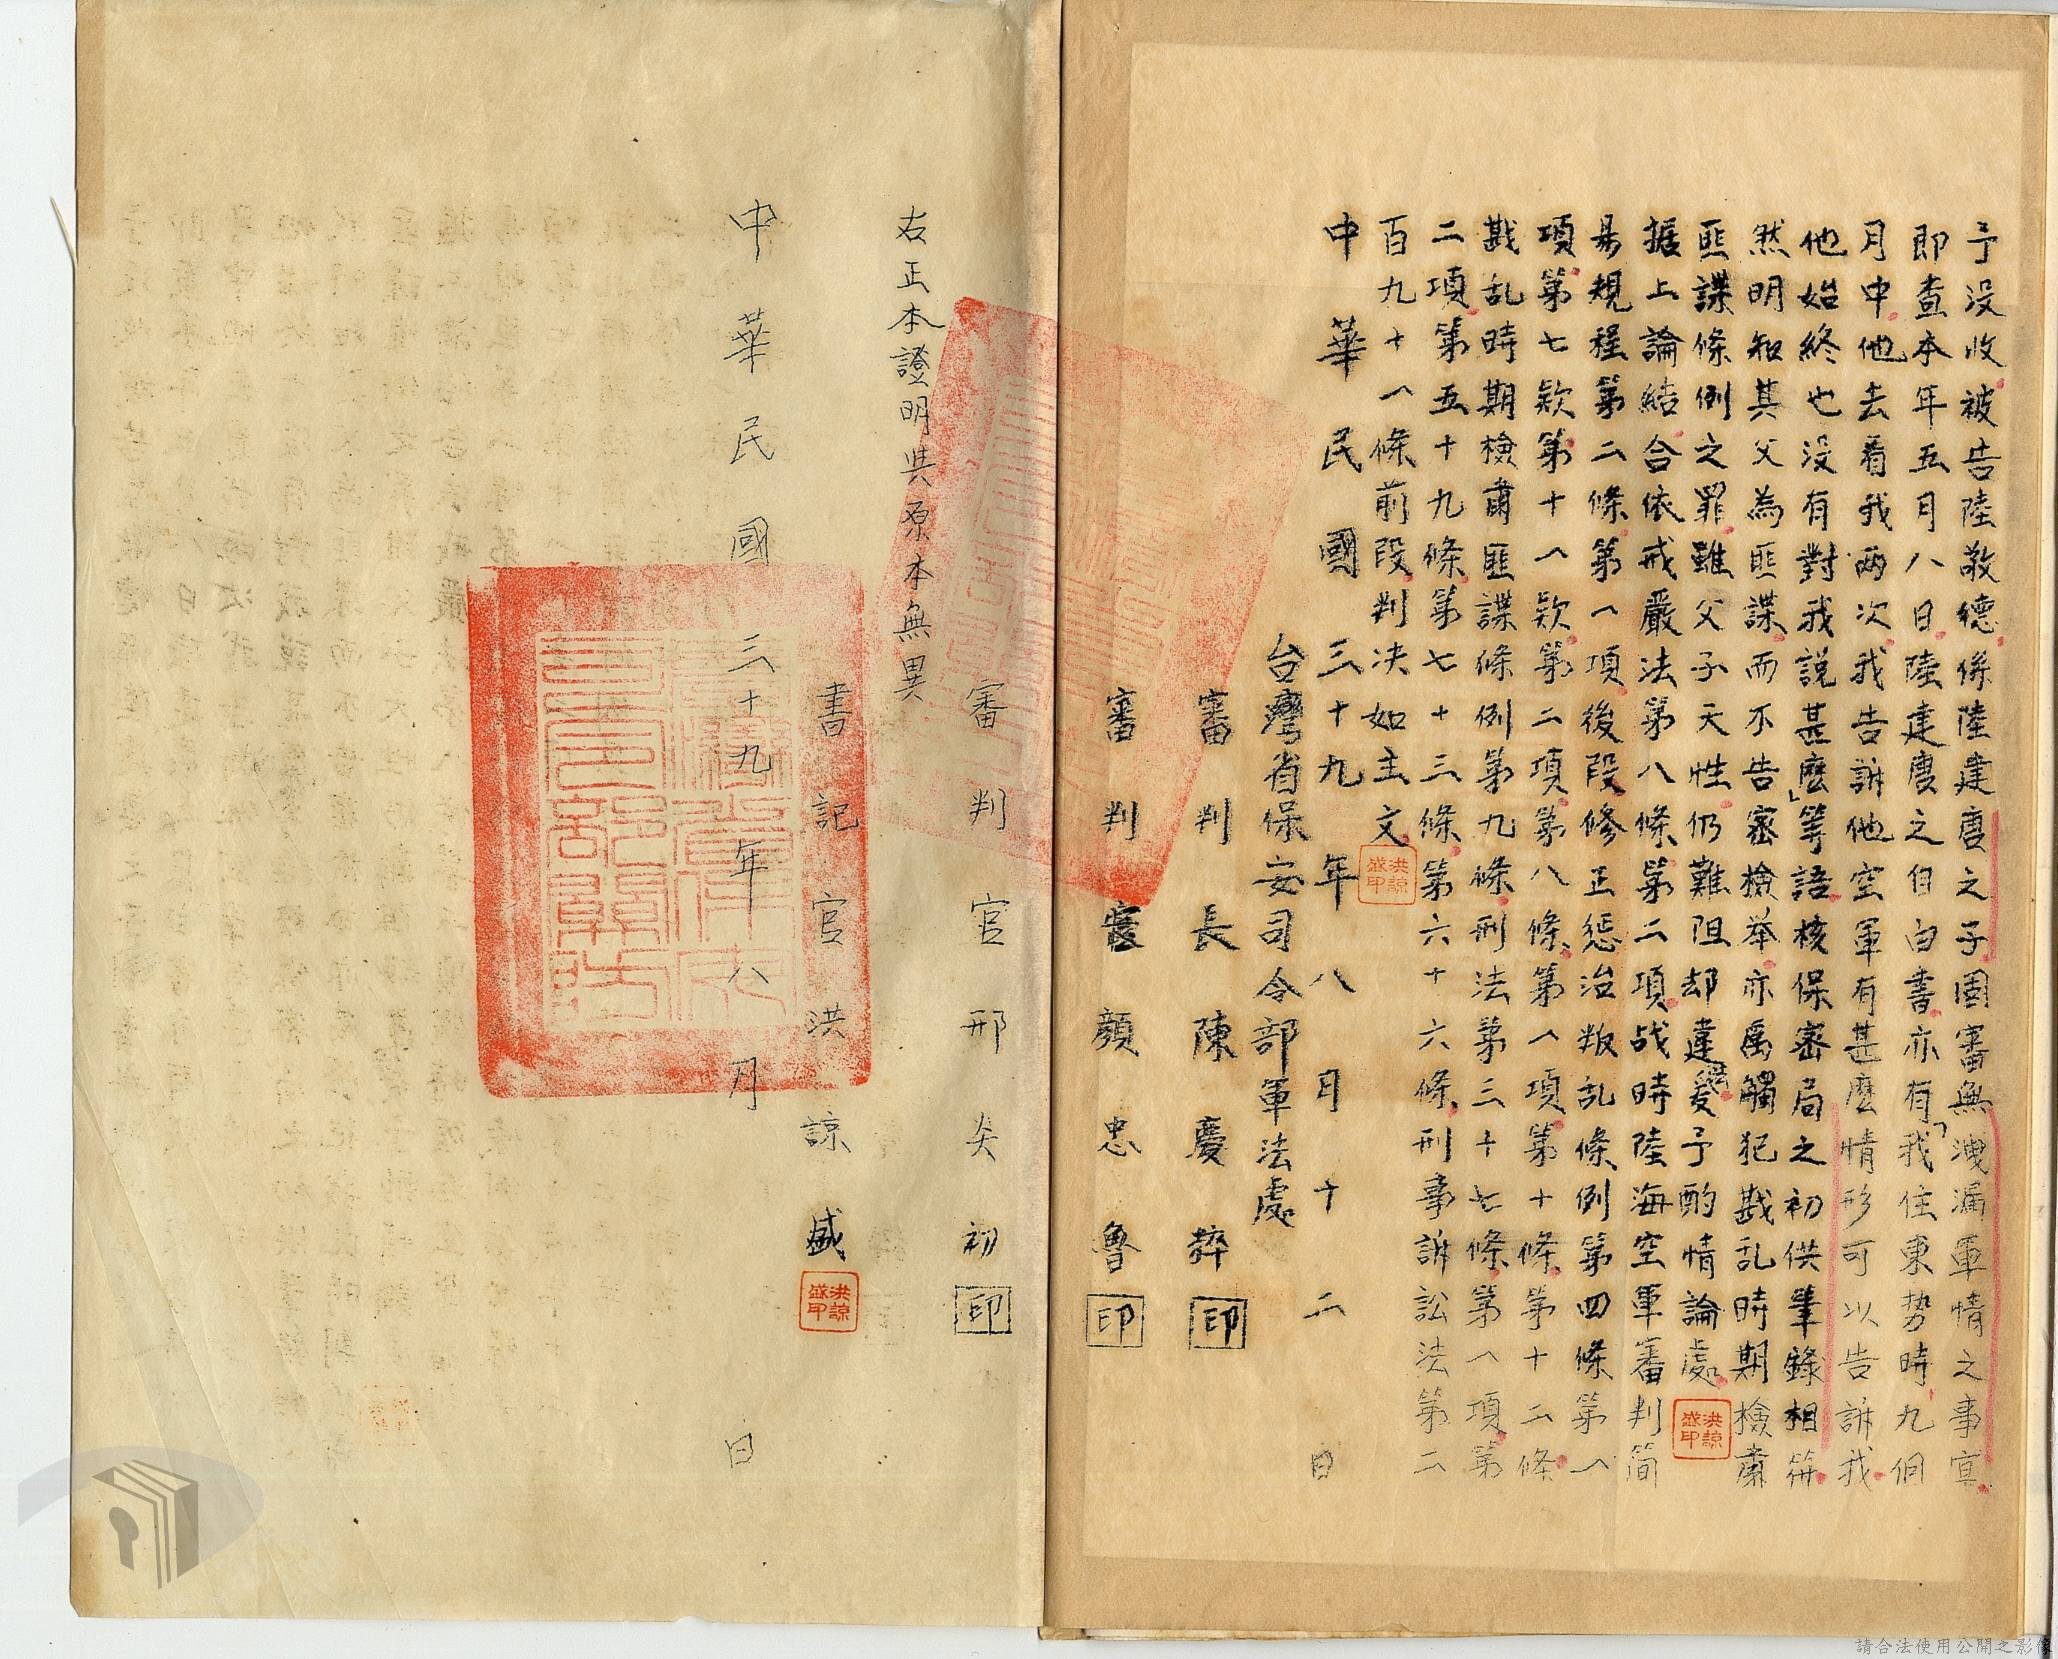 予没收被告陸敬德係陸建唐之子固審無洩漏軍情之事宜
即查本年五月八日陸建唐之自白書亦有「我住東势時九個
月中他去看我兩次我告訴他空軍有甚麽情形可以告訴我
他始終也没有對我說甚麽」等語核保密局之初供筆錄相符
然明知其父為匪諜而不告密檢举亦為觸犯戡乱時期檢肅
匪諜條例之罪雖父子天性仍難阻却違爰予酌情論處
据上論結合依戒嚴法第八條第二項战時陸海空軍審判简
易規程第二條第一項後段修正惩治叛乱條例第四條第一
項第七款第十一款第二項第八條第一項第十條第十二條
戡乱時期檢肅匪諜條例第九條刑法第三十七條第一項第
二項第五十九條第七十三條第六十六條刑事訴訟法第二
百九十一條前段判决如主文
洪諒盛印
洪諒盛印
中華民國三十九年八月十二日
台灣省保安司令部軍法處
審判長陳慶粹印
審判官顏忠魯印
審判官邢炎初印
右正本證明與原本無異
書記官洪諒盛
洪諒盛印
中華民國三十九年八月　日
請合法使用公開之影像